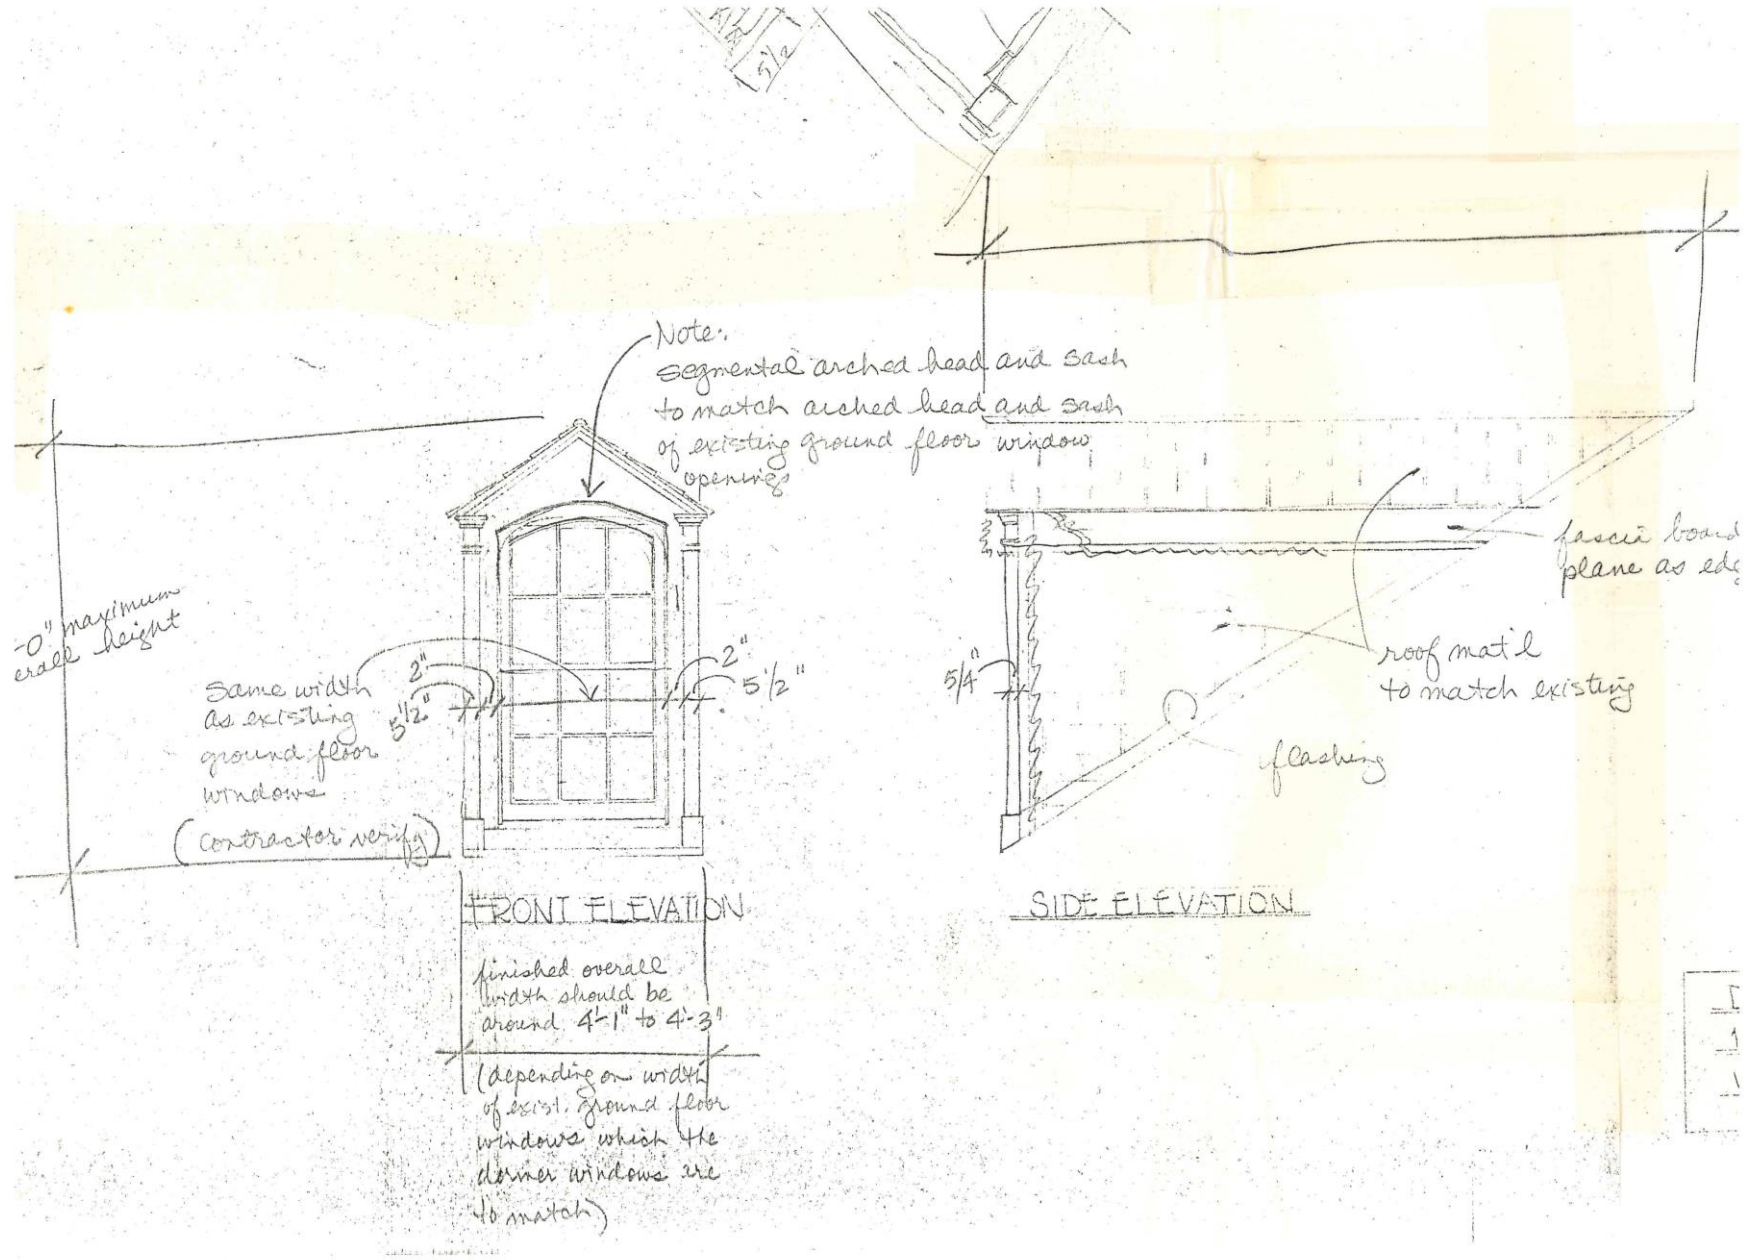 5 1/2
Note:
segmental arched head and sash
to match arched head and sash
of existing ground floor window
openings
-0" maximum
erall height
Same width
as existing
ground floor
windows
(contractor verify)
2"
5 1/2"
2"
5 1/2"
5/4"
fascia board
plane as edg
roof mat'l
to match existing
flashing
FRONT ELEVATION
SIDE ELEVATION
finished overall
width should be
around 4'-1" to 4'-3"
(depending on width
of exist. ground floor
windows which the
dormer windows are
to match)